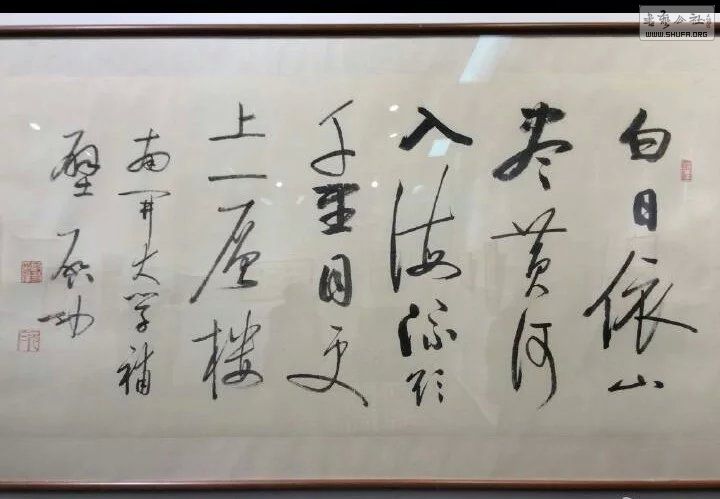 白日依山
尽黄河
入海流欲
千里目更
上一层楼
南开大学补
壁 启功
书艺公社
WWW.SHUFA.ORG